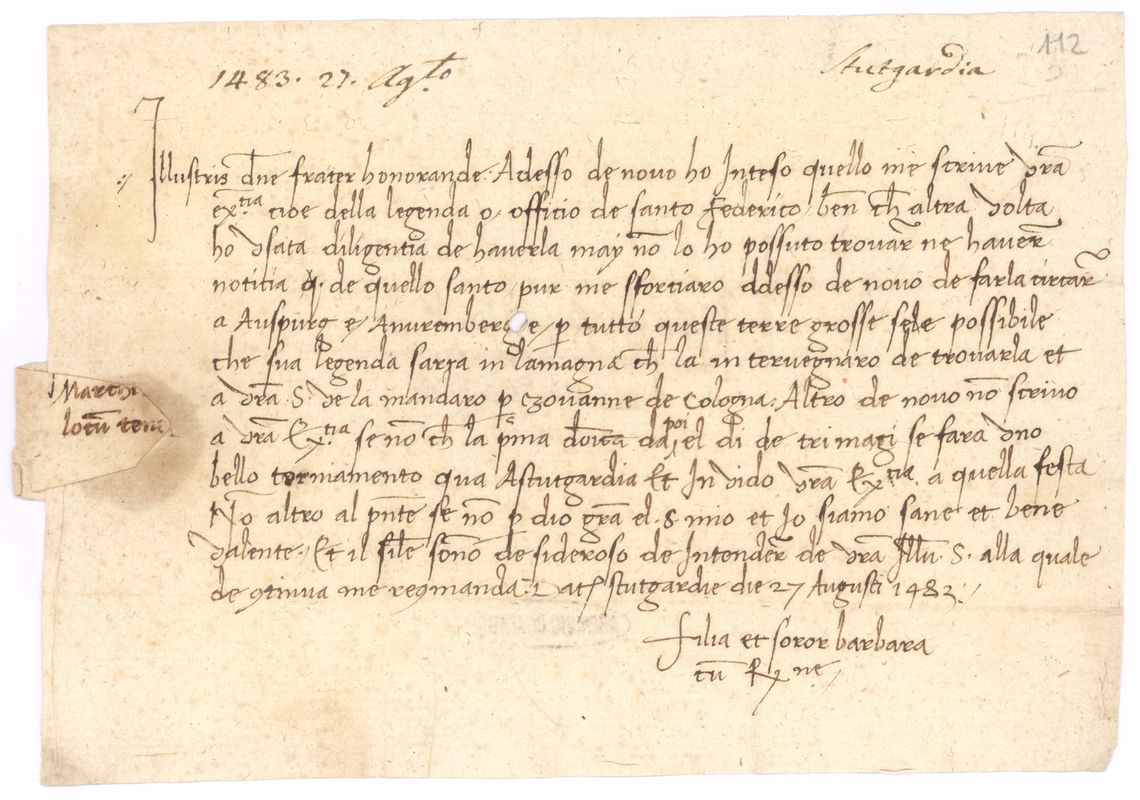 112
1483. 27. Ag.to
Stutgardia
Illustris dn̄e frater honorande. Adesso de novo ho Inteso quello me scrive vrā
ex.tia cioe della legenda o officio de santo Federico, bēn ch̄ altra volta
ho vsata diligentia de haverla may nō lo ho possuto trovar̄ ne haver̄
notitia de quello santo, pur me sfortiaro addesso de novo de farla circar̄
a Auspurg e Anuremberg e p̱ tutto queste terre grosse se le possibile
che sua legenda sarra in lamagna ch̄ la intervegnaro de trovarla et
a vrā S. ve la mandaro p̱ Czovanne de Cologna. Altro de novo nō scrivo
a vrā Ex.tia se nō ch̄ la p̄ma dōica dapoi el di de tri magi se fara vno
bello torniamento qua Astutgardia Et Invido vrā Ex.tia a quella festa
Nō altro al pn̄te se nō p̱ dio grā el .S. mio et Io siamo sane et bene
valente. Et il sil̄e sōno desideroso de Intender̄ de vrā Illu. S. alla quale
de ꝯtinua me reꝯmanda. Datꝭ stutgardie die 27 Augusti 1483.
Filia et soror barbara
cū Rx ne
Marchi
locū tene